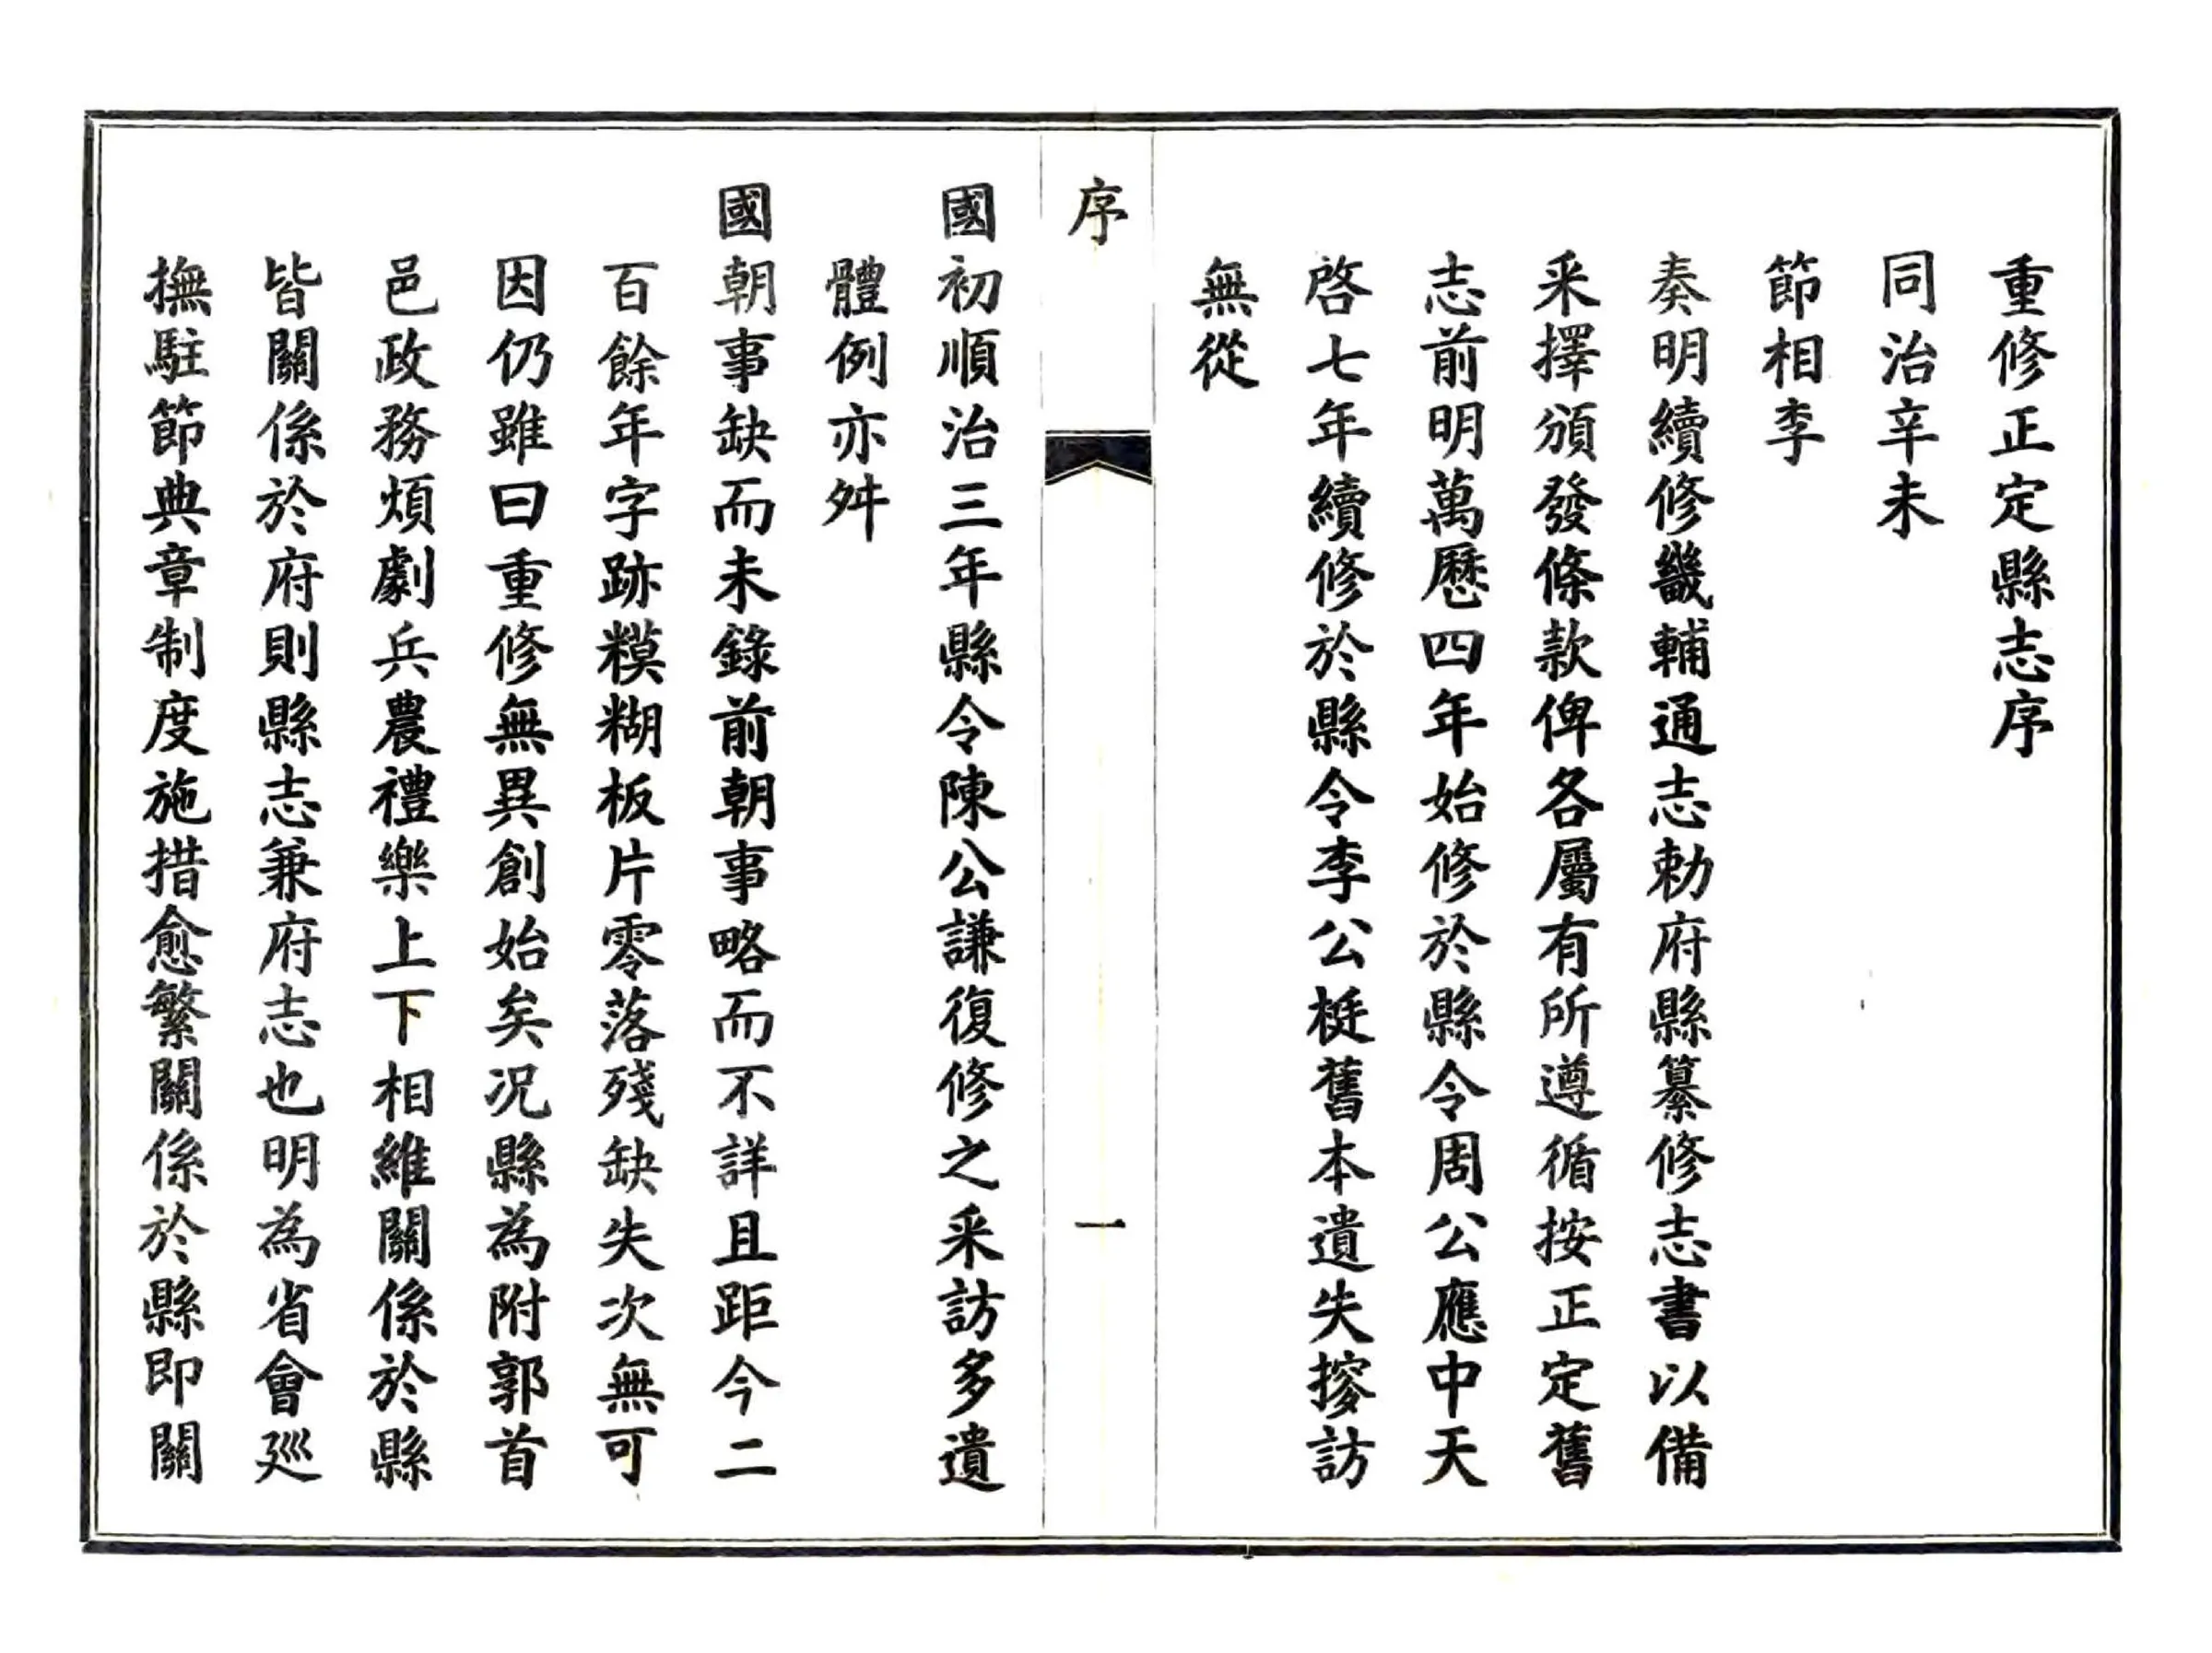 重修正定縣志序
同治辛未
節相李
奏明續修畿輔通志勅府縣纂修志書以備
采擇頒發條款俾各屬有所遵循按正定舊
志前明萬歷四年始修於縣令周公應中天
啓七年續修於縣令李公梃舊本遺失摉訪
無從
序
一
國初順治三年縣令陳公謙復修之采訪多遺
體例亦舛
國朝事缺而未錄前朝事略而不詳且距今二
百餘年字跡糢糊板片零落殘缺失次無可
因仍雖曰重修無異創始矣況縣為附郭首
邑政務煩劇兵農禮樂上下相維關係於縣
皆關係於府則縣志兼府志也明為省會廵
撫駐節典章制度施措愈繁關係於縣即關